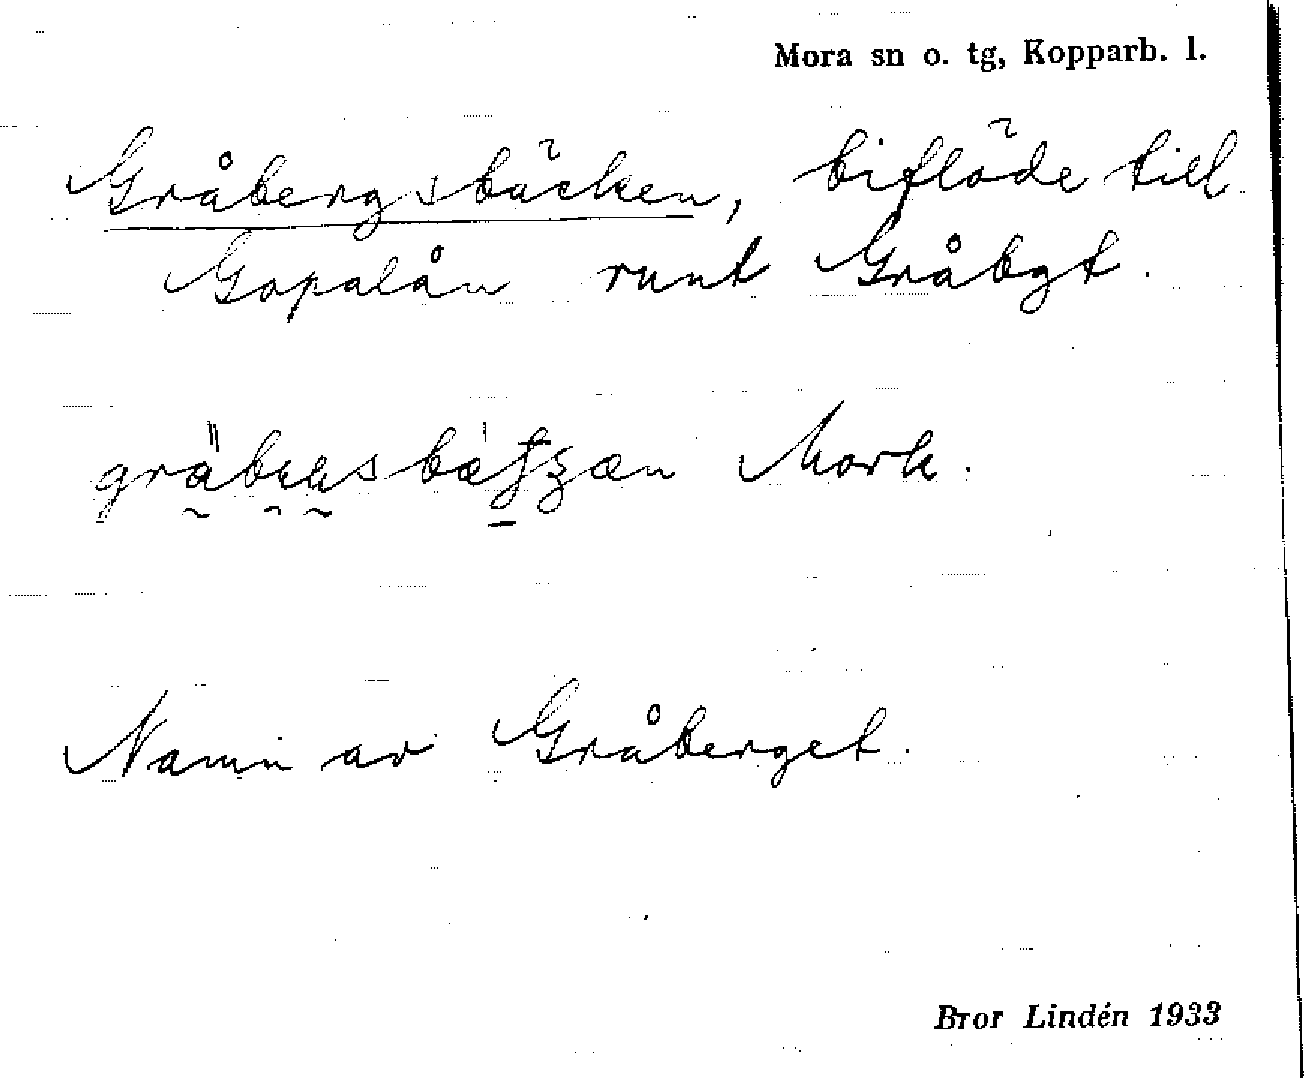 Mora sn o. tg, Kopparb. l.
Gråbergsbäcken, biflöde till
Gopalån runt Gråbgt.
Mork.
Namn av Gråberget.
Bror Lindén 1933